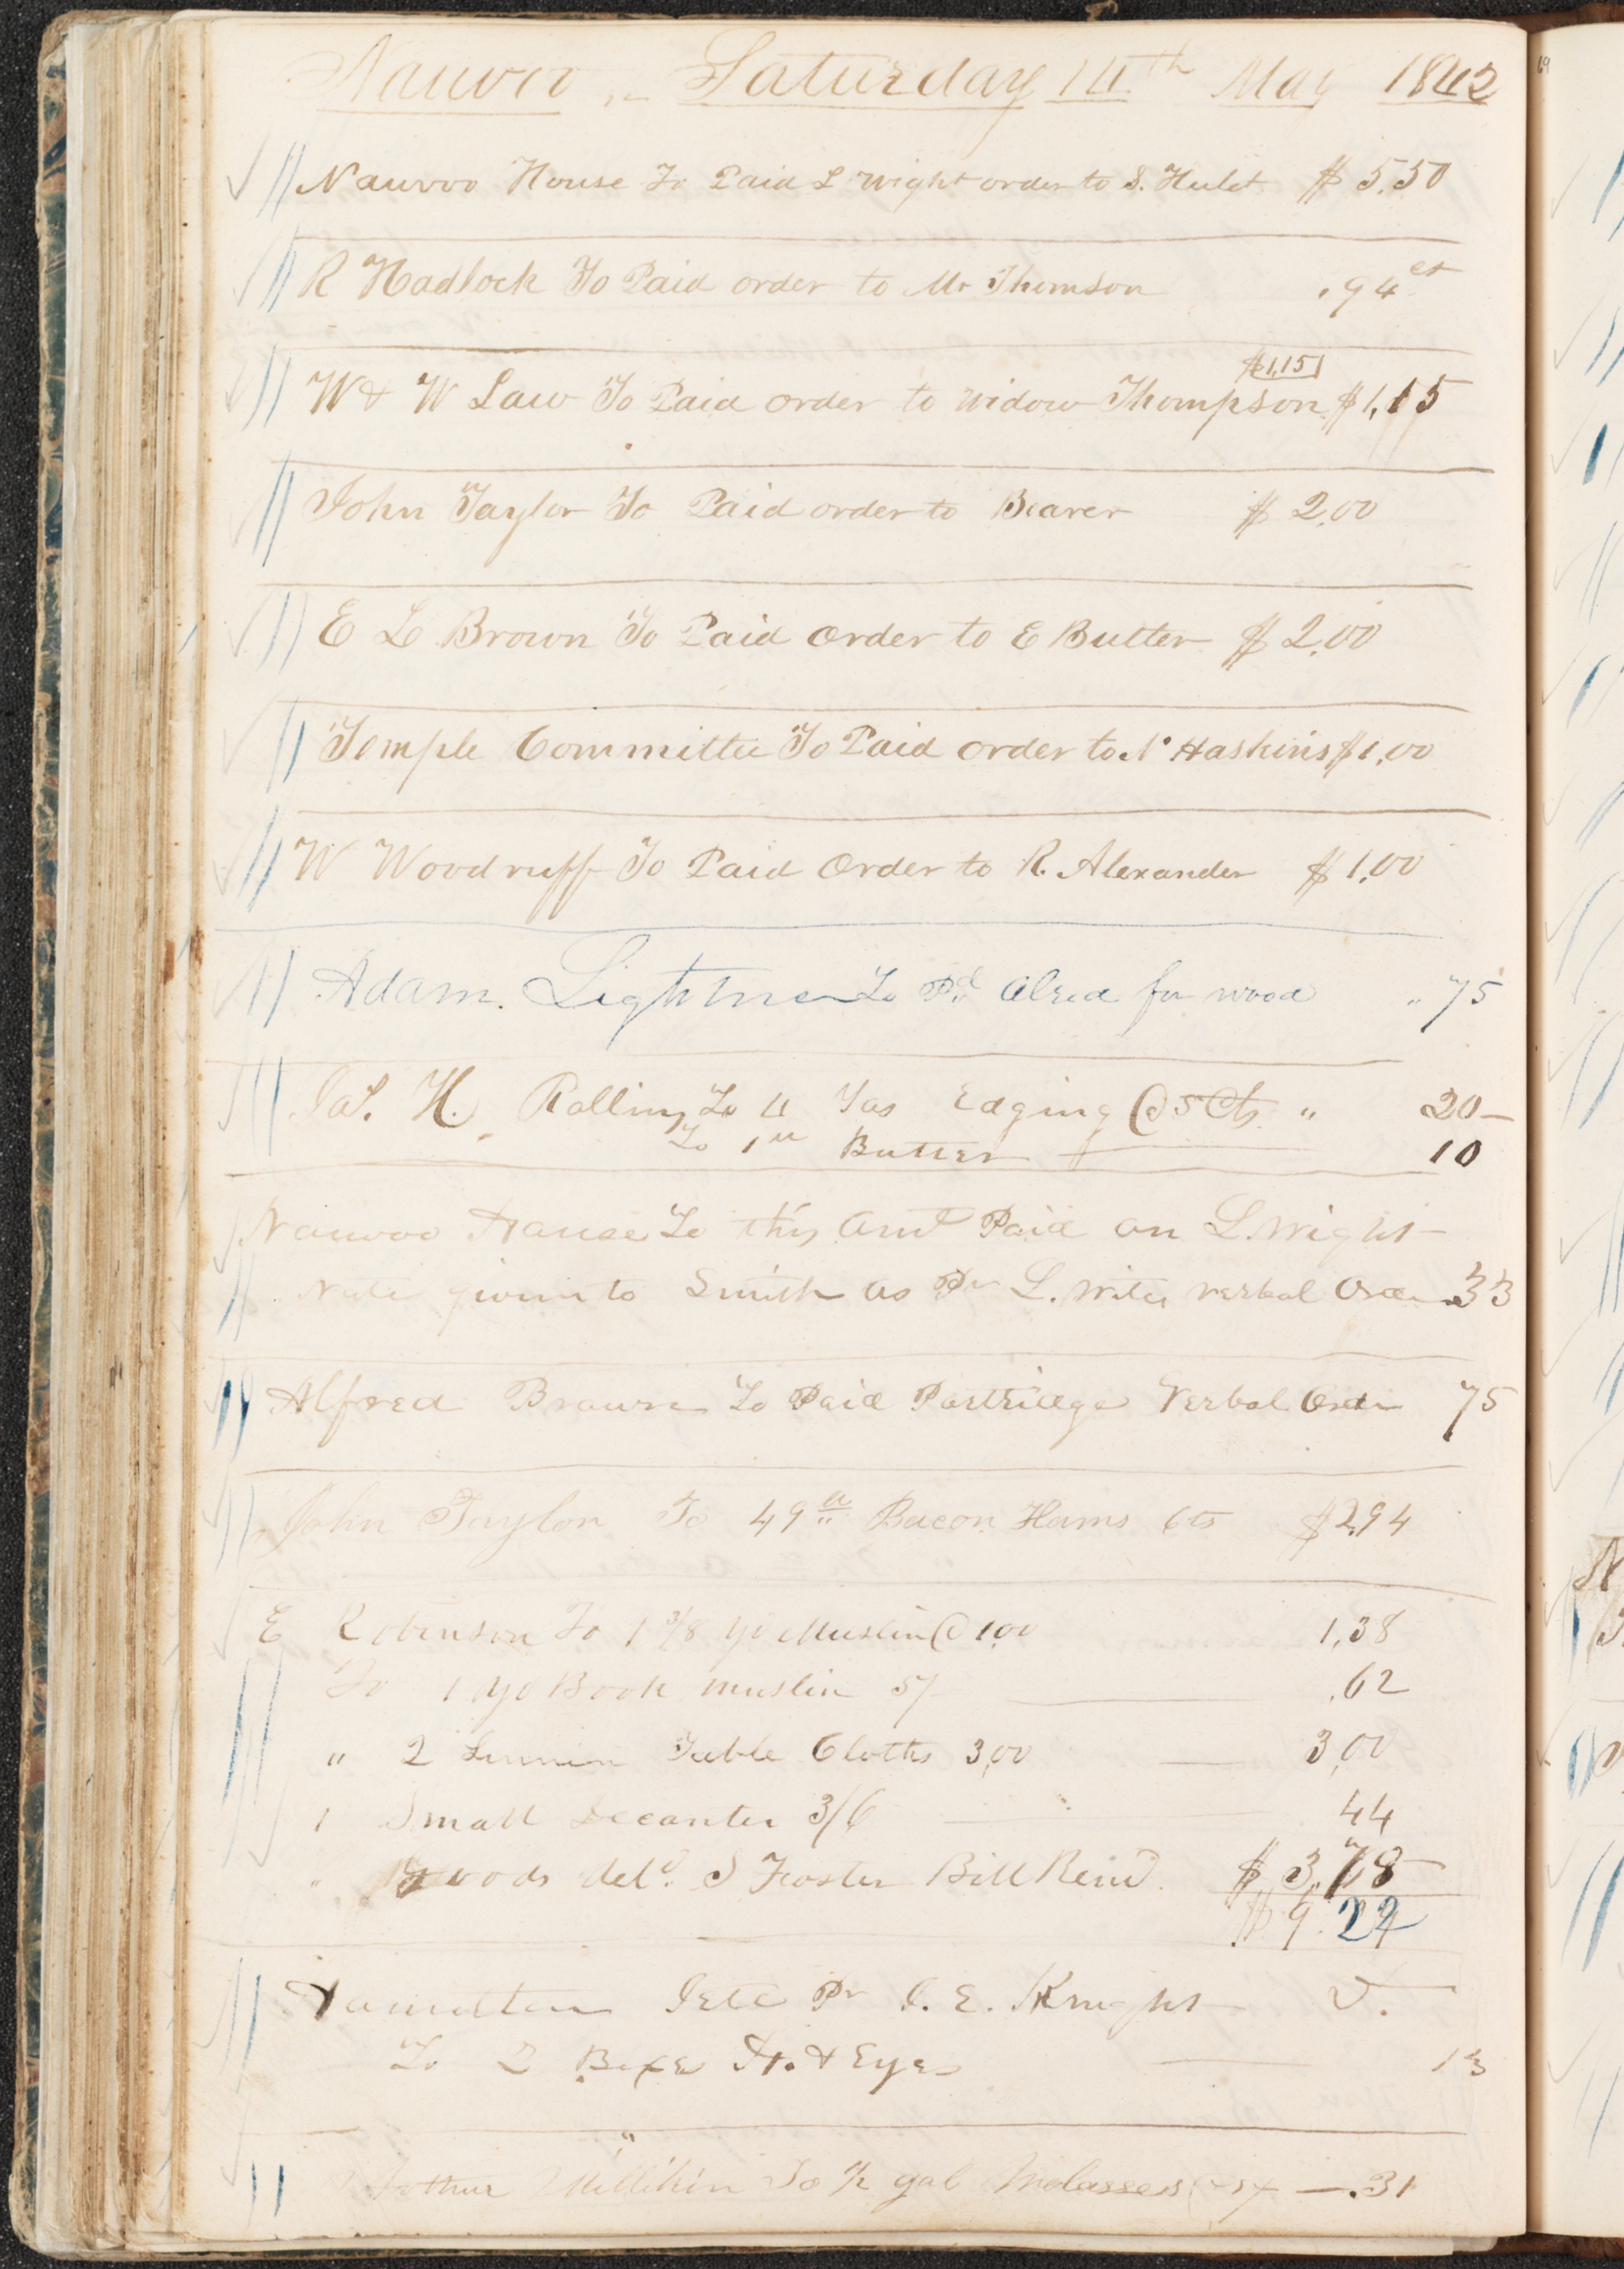 Nauvoo, Saturday 14th May 1842
Nauvoo House To Paid L Wight order to S. Hulet $5.50
R Hadlock To Paid order to Mr Thomson .94 cts
$1,15
W & W Law To Paid order to widow Thompson $1,15
John Taylor To Paid order to Bearer $2.00
E L Brown To Paid Order to E Butler $2.00
Temple Committee To Paid order to N Haskins $1.00
W Woodruff To Paid Order to R. Alexander $1.00
Adam. Lightner To Pd Alred for wood " 75
Jas. H. Rollins To 4 Yds Edging @ 5 Cts " 20
To 1 ℔ Butter 10
Nauvoo House To this Amt Paid on L. Wight
Note given to Smith as Pr L. Wites verbal Order .33
Alfred Brown To Paid Partridge Verbal Order 75
John Taylor To 49 ℔ Bacon Hams 6cts $2.94
E Robinson To 1 3/8 yd Muslin @ 1.00 1,38
To 1 yd Book muslin 5/ .62
" 2 Linnin Table Cloths 3,00 3,00
1 Small Decanter 3/6 44
" Goods deld. S Foster Bill Rend. $3.78
$9.22
Hamilton Jett Pr J. E. Knight
To 2 Boxes H. & Eyes 13
Arthur Millikin To ½ gal Molasses .31